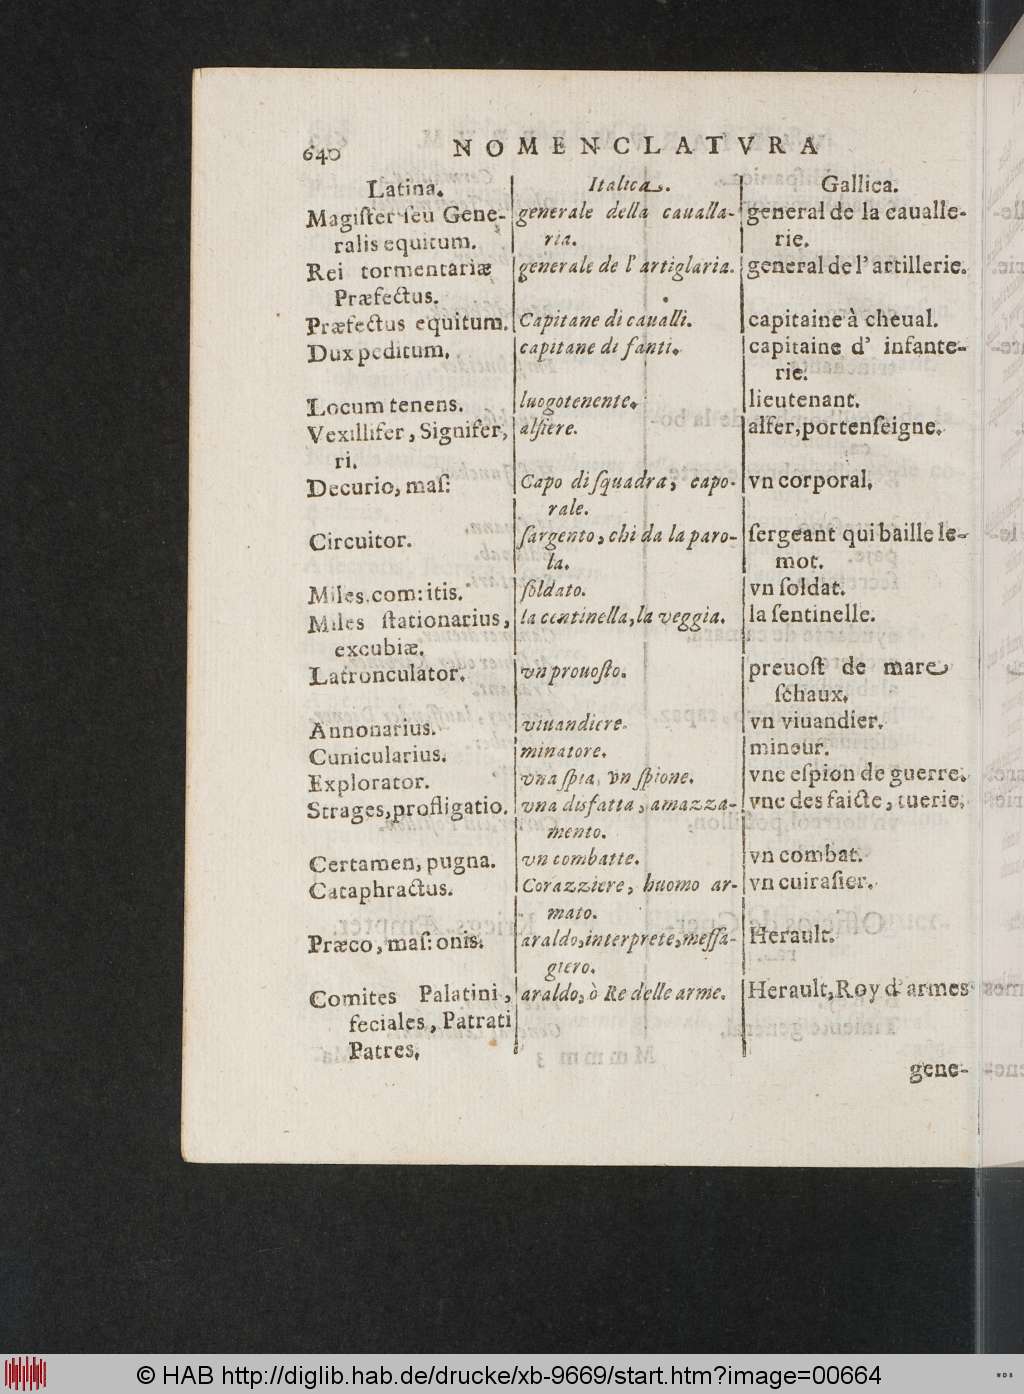 640 NOMENCLATVRA
Latina. Italica. Gallica.
Magiſter ſeu Gene- generale della cauallla- general de la cauallle-
ralis equitum. ria. rie.
Rei tormentariæ generale de l' artiglaria. general de l' artillerie.
Præfectus.
Præfectus equitum. Capitane di caualli. capitaine à cheual.
Dux peditum. capitane di fanti. capitaine d' infante-
rie.
Locum tenens. luogotenente. lieutenant.
Vexillifer, Signifer, alfiere. alfer, portenſeigne.
ri.
Decurio, maſ: Capo di ſquadra, capo- vn corporal.
rale.
Circuitor. ſargento, chi da la paro- ſergeant qui baille le-
la. mot.
Miles.com: itis. ſoldato. vn ſoldat.
Miles ſtationarius, la centinella, la veggia. la ſentinelle.
excubiæ.
Latronculator. vn prouoſto. preuoſt de mare
ſchaux.
Annonarius. viuandiere. vn viuandier.
Cunicularius. minatore. mineur.
Explorator. vna ſpia, vn ſpione. vne eſpion de guerre.
Strages, profligatio. vna disfatta, amazza- vne desfaicte, tuerie.
mento.
Certamen, pugna. vn combatte. vn combat.
Cataphractus. Corazziere, huomo ar- vn cuiraſier.
mato.
Præco, maſ: onis. araldo, interprete, meſſa- Herault.
giero.
Comites Palatini, araldo, ò Re delle arme. Herault, Roy d' armes
feciales, Patrati
Patres.
gene-
© HAB http://diglib.hab.de/drucke/xb-9669/start.htm?image=00664